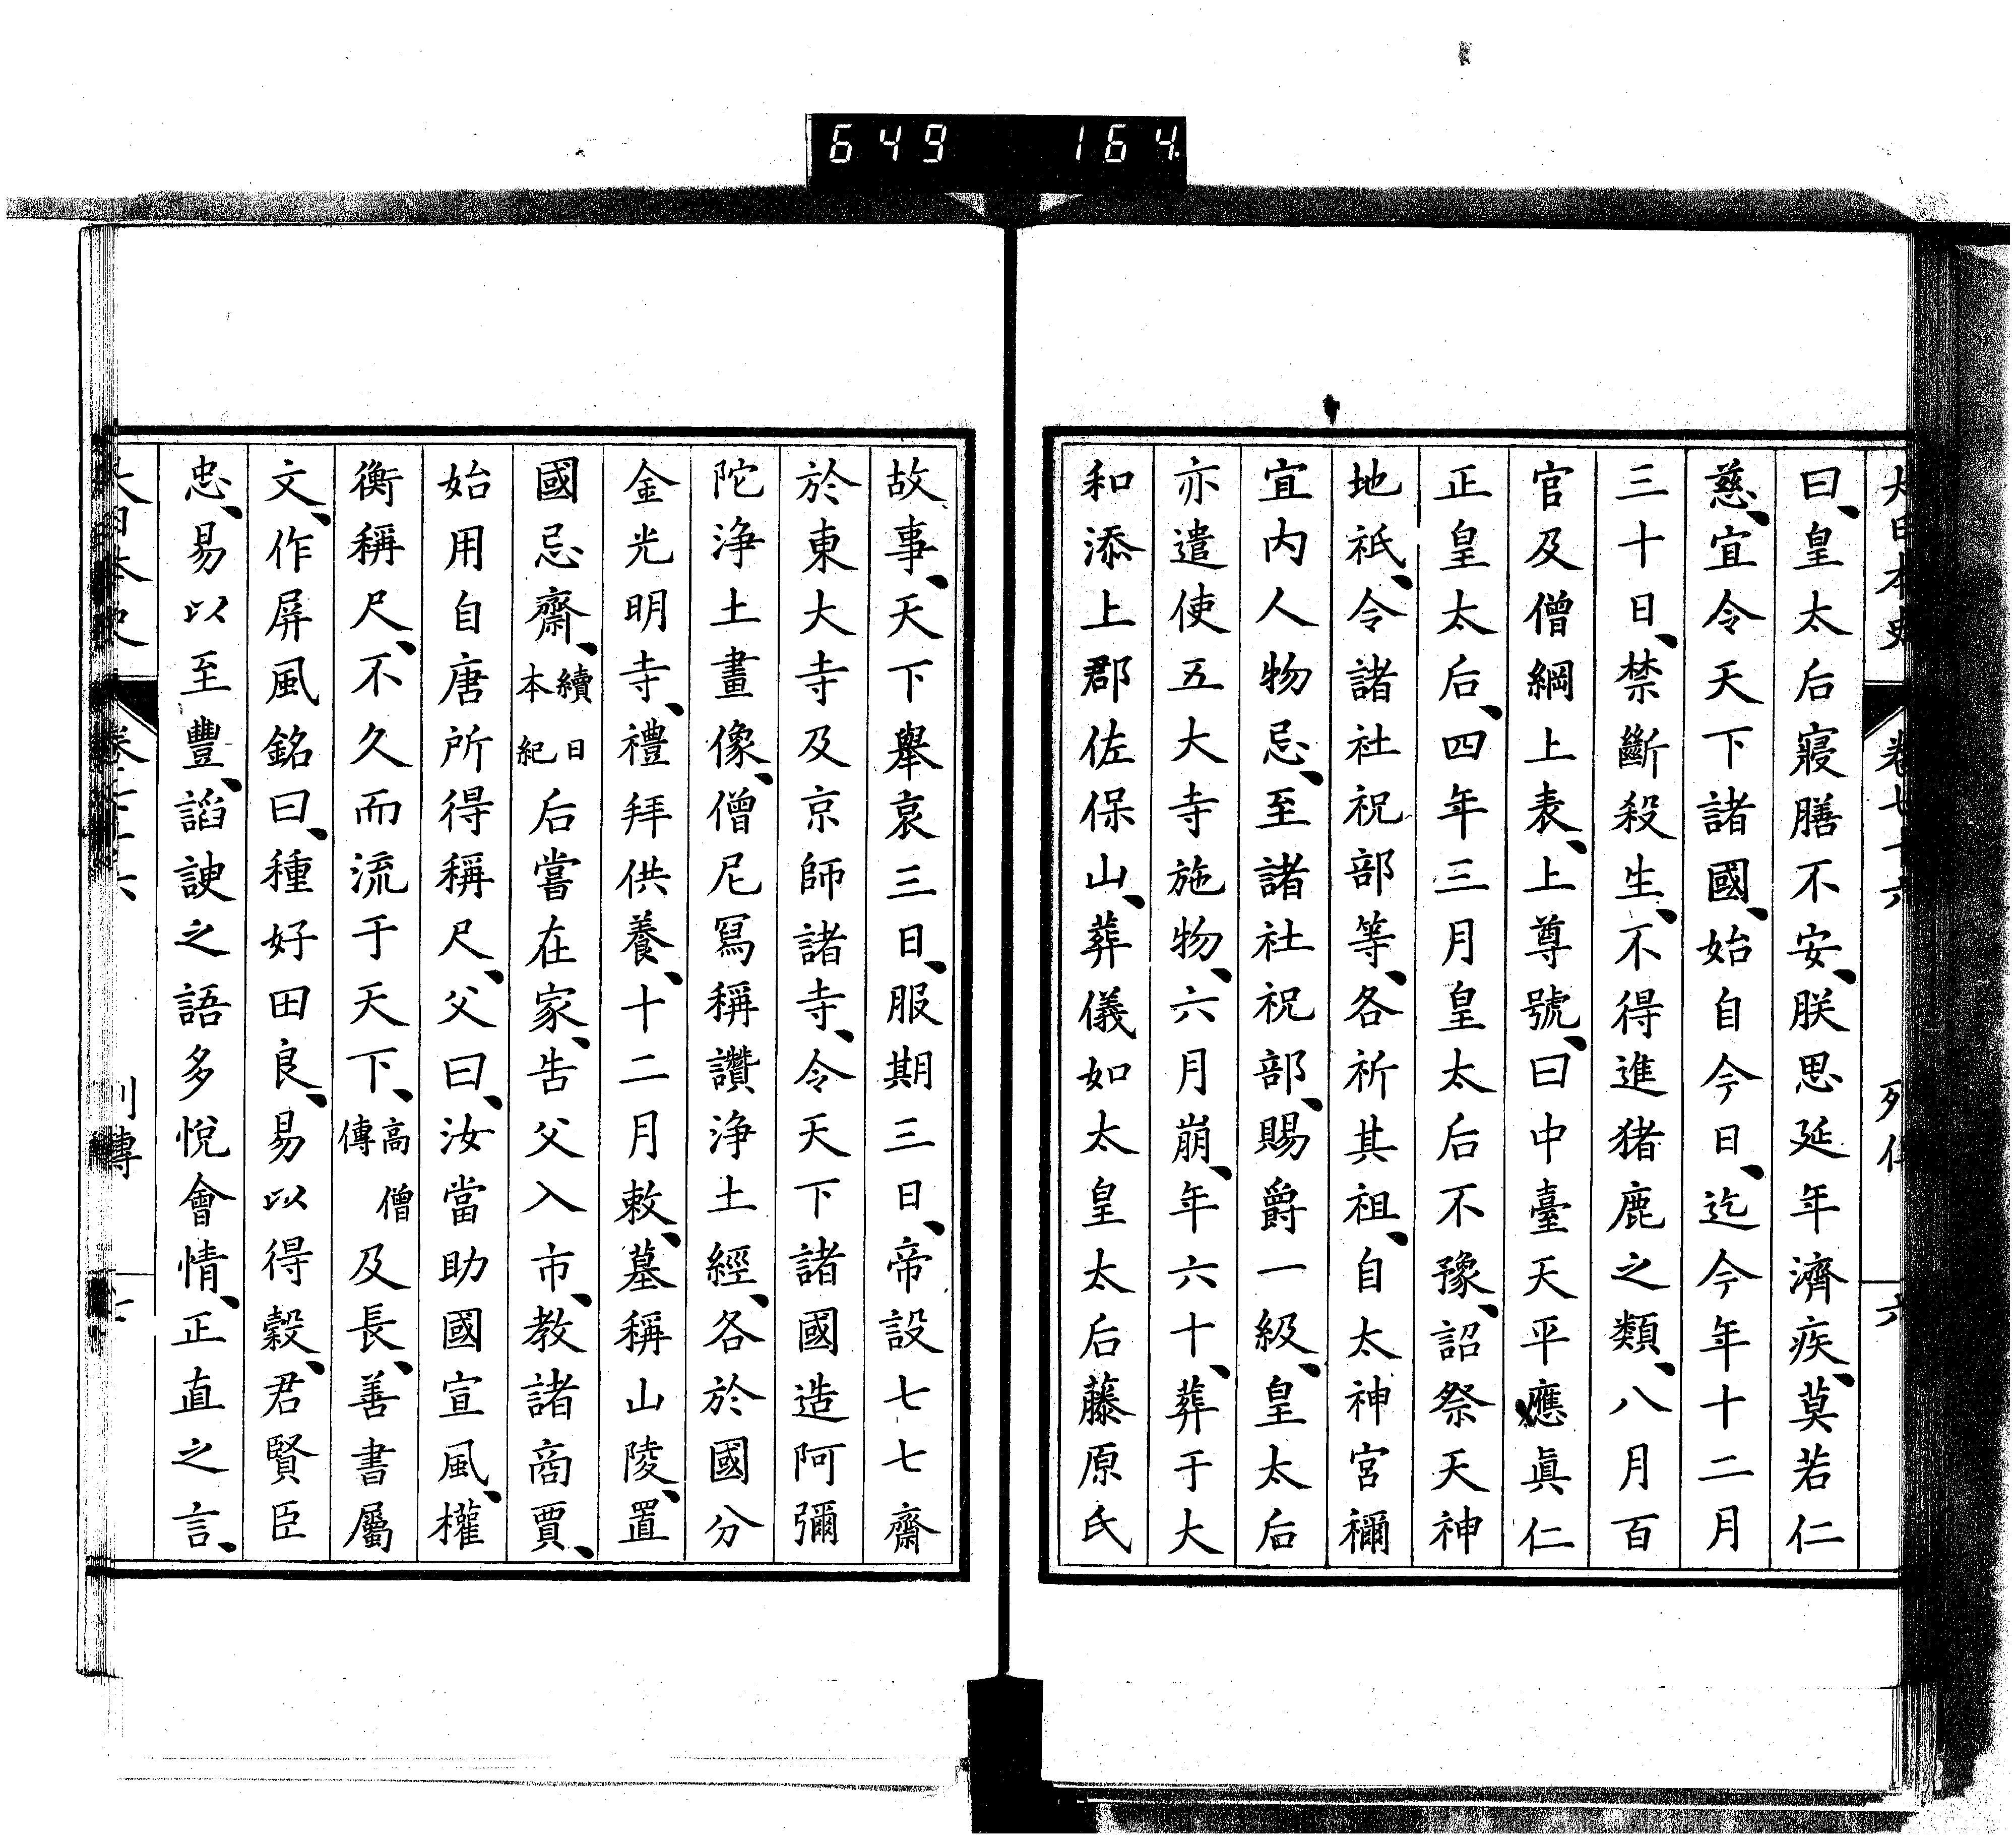 649 164
大日本史 卷七十六 列傳 六
曰、皇太后寢膳不安、朕思延年濟疾、莫若仁
慈、宜令天下諸國、始自今日、迄今年十二月
三十日、禁斷殺生、不得進猪鹿之類、八月百
官及僧綱上表、上尊號、曰中臺天平應眞仁
正皇太后、四年三月皇太后不豫、詔祭天神
地祇、令諸社祝部等、各祈其祖、自太神宮禰
宜内人物忌、至諸社祝部、賜爵一級、皇太后
亦遣使五大寺施物、六月崩、年六十、葬于大
和添上郡佐保山、葬儀如太皇太后藤原氏
故事、天下舉哀三日、服期三日、帝設七七齋
於東大寺及京師諸寺、令天下諸國造阿彌
陀浄土畫像、僧尼寫稱讚浄土經、各於國分
金光明寺、禮拜供養、十二月敕、墓稱山陵、置
國忌齋、續日本紀后嘗在家、告父入市、教諸商賈、
始用自唐所得稱尺、父曰、汝當助國宣風、權
衡稱尺、不久而流于天下、高僧傳及長、善書屬
文、作屏風銘曰、種好田良、易以得穀、君賢臣
忠、易以至豐、諂諛之語多悅會情、正直之言、
大日本史 卷七十六 列傳 七